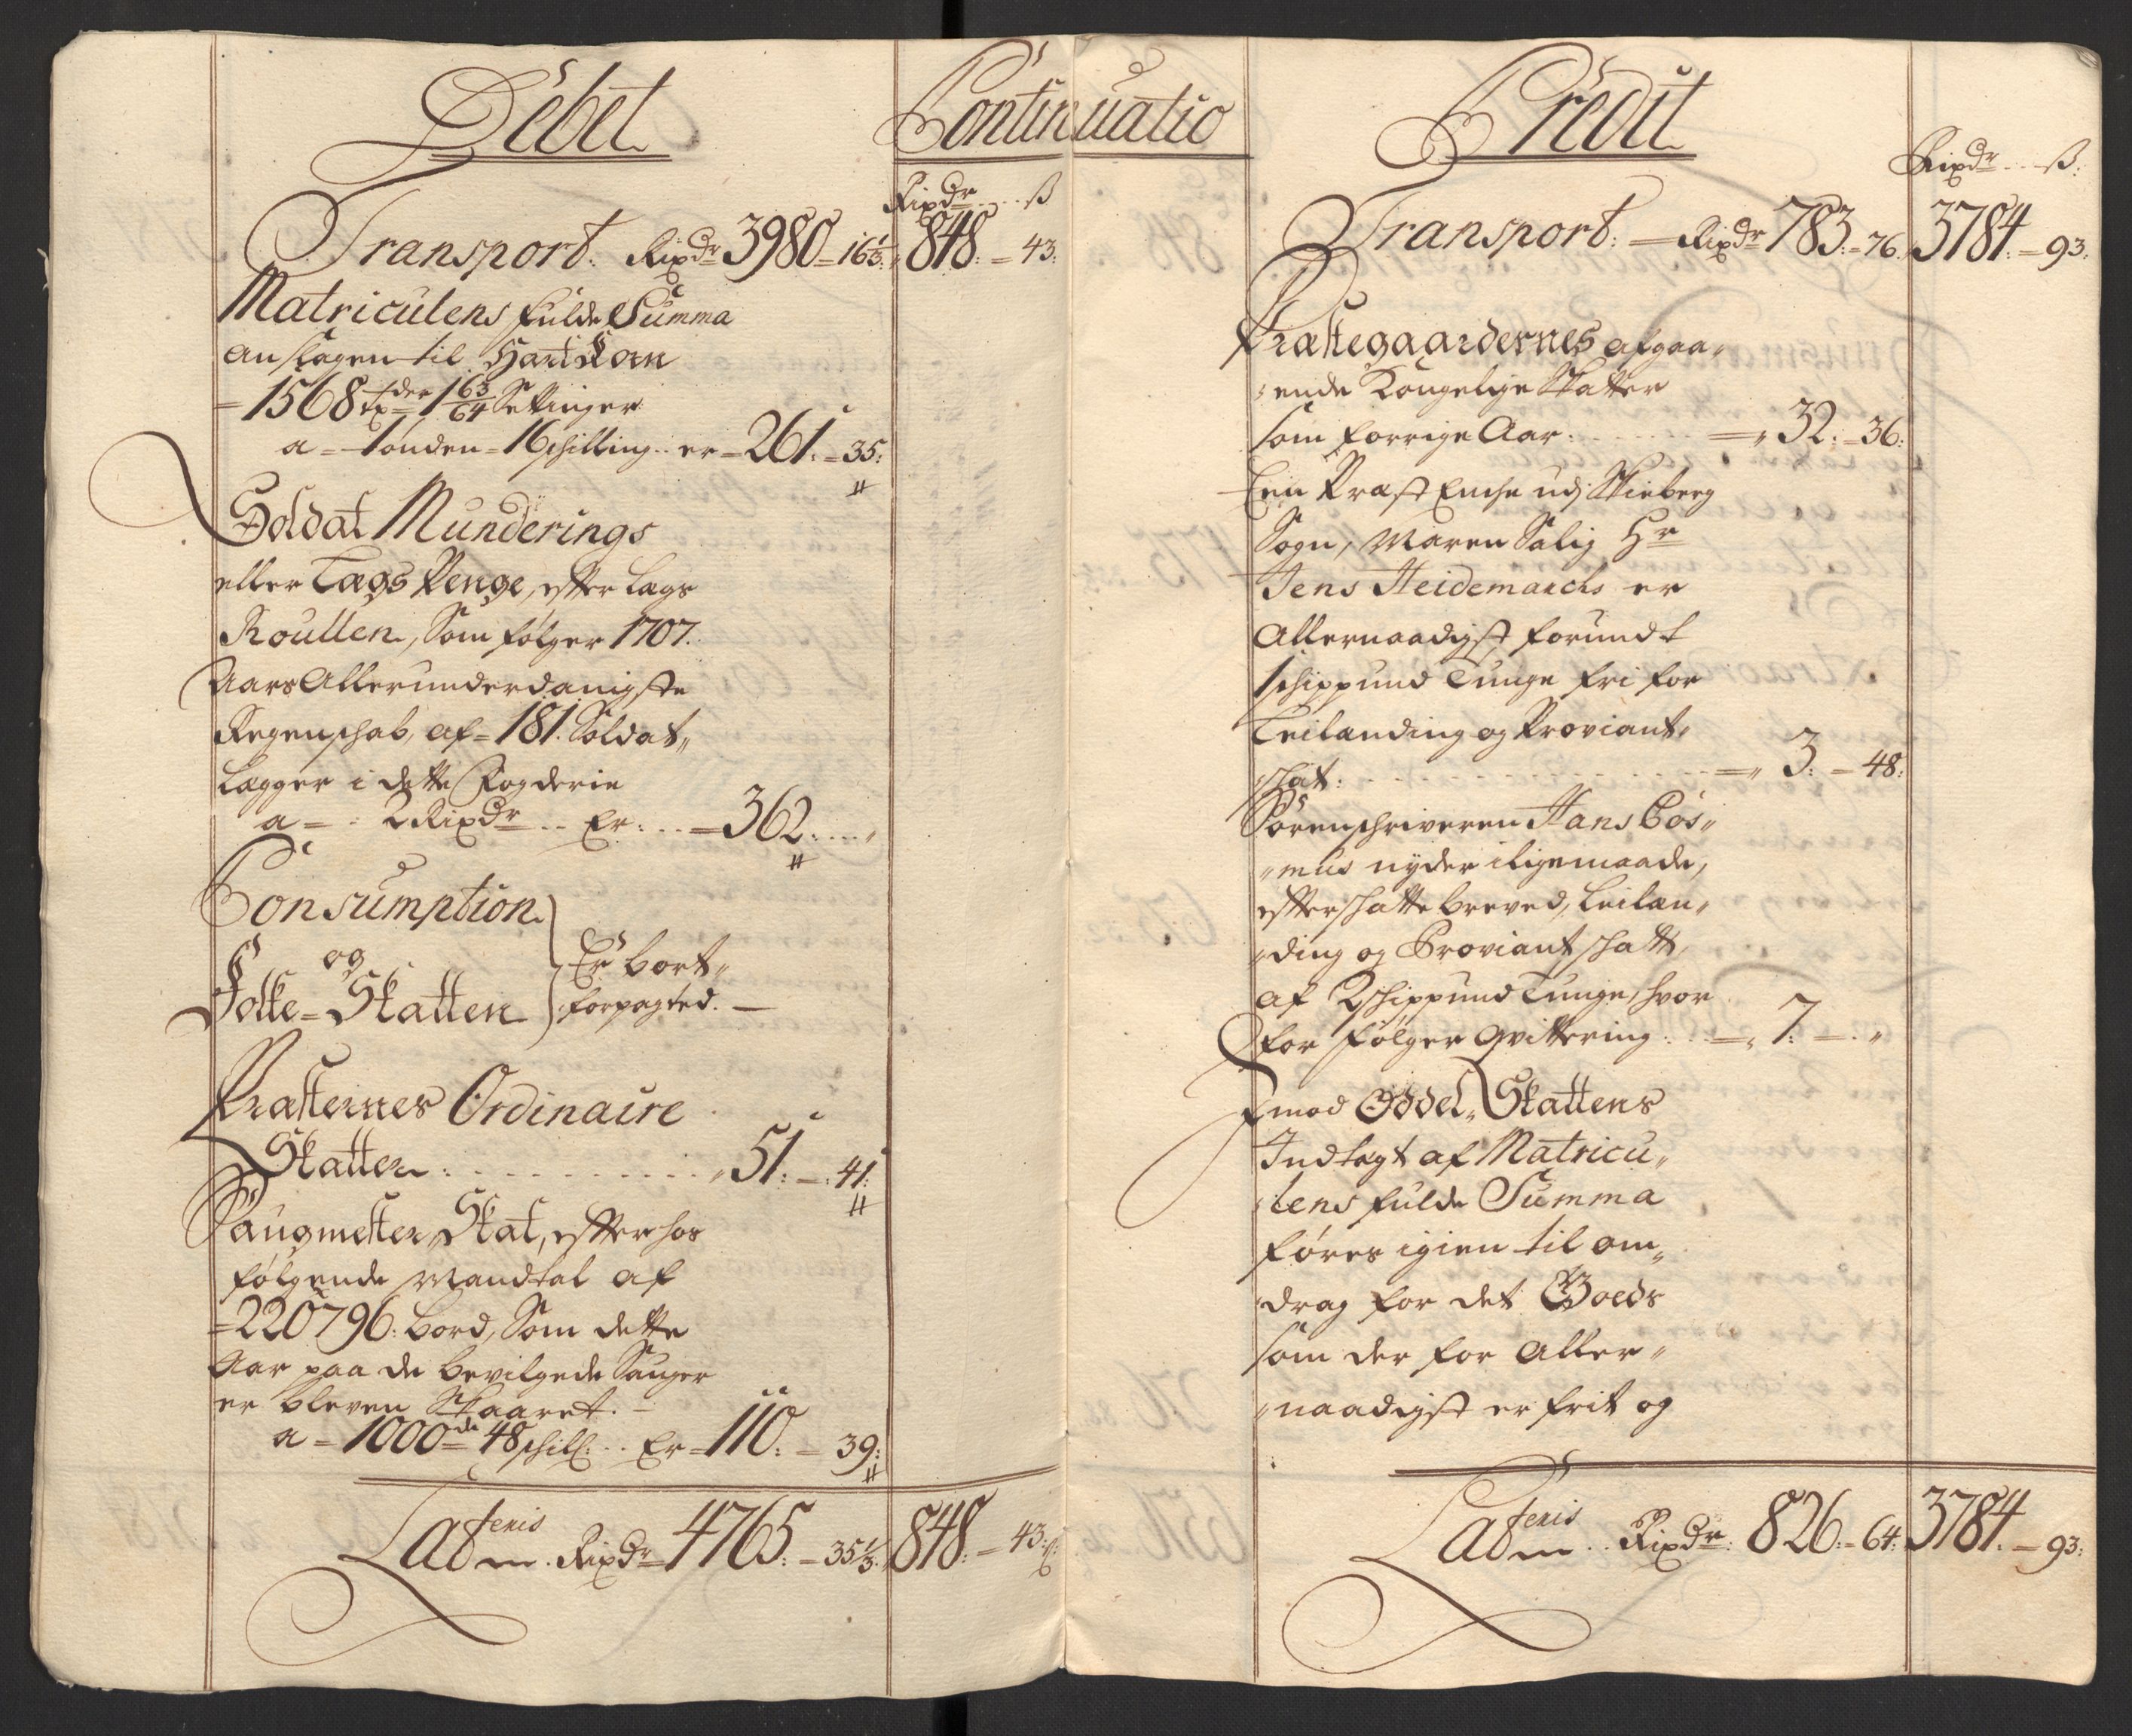 Debet
Continuatio
Rixdr ß
Transport. Rixdr 3980 = 16 1/3: 848: = 43:
Matriculens fulde Summa
anslagen til Hart Korn
= 1568 tder 1 63/64 Settinger
a = 1 tønden = 16 schilling .. er = 261: = 35:
Soldat Munderings
eller Lægs Penge, efter Lægs
Roullen, Som følger 1707.
Aars Allerunderdanigste
Regenschab, af = 181. Soldat„
Lægger i dette Fogderie
a = 2 Rixdr .. Er: .. = 362: .. „
Consumption
og
Folke = Skatten
Er bort„
forpagted. —
Præsternes Ordinaire
Skatter: . . . . . . . „ 51: = 41:
Saugmester„Skat, efter hos
følgende Mandtal af
= 220796: bord, Som dette
Aar paa de bevilgede Sauger
er bleven Skaaret. —
a = 1000de 48 schill: .. Er = 110: = 39:
Lateris Rixdr 4765: = 35 1/3: 848: = 43:
Credit
Rixdr .. ß:
Transport: — Rixdr 783: = 76. 3784: = 93:
Præstegaardernes afgaa„
„ende Kongelige Skatter
som forrige Aar: . . . . = „ 32: = 36:
Een Præst Enche udj Skieberg
Sogn, Maren Salig Hr
Jens Heidemarchs er
Allernaadigst forundt
1 schippund Tunge fri for
Leilænding og Proviant„
„schat: . . . . . . . = „ 3: = 48:
Sorenschriveren Hans Cos„
„mus nyder iligemaade,
efter schattebreved, Leilæn„
„ding og Proviant schatt,
af 2 schippund Tunge, hvor
for følger Qvittering: .. = „ 7: = . „
Imod Oddel„Skattens
Indtegt af Matricu„
„lens fulde Summa
føres igien til om„
„drag for det Goeds
som der for Aller„
„naadigst er frit og
Lateris .. Rixdr: 826: = 64: 3784: = 93: